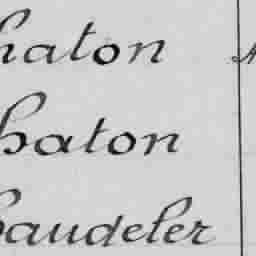 haton
haton
haudeler